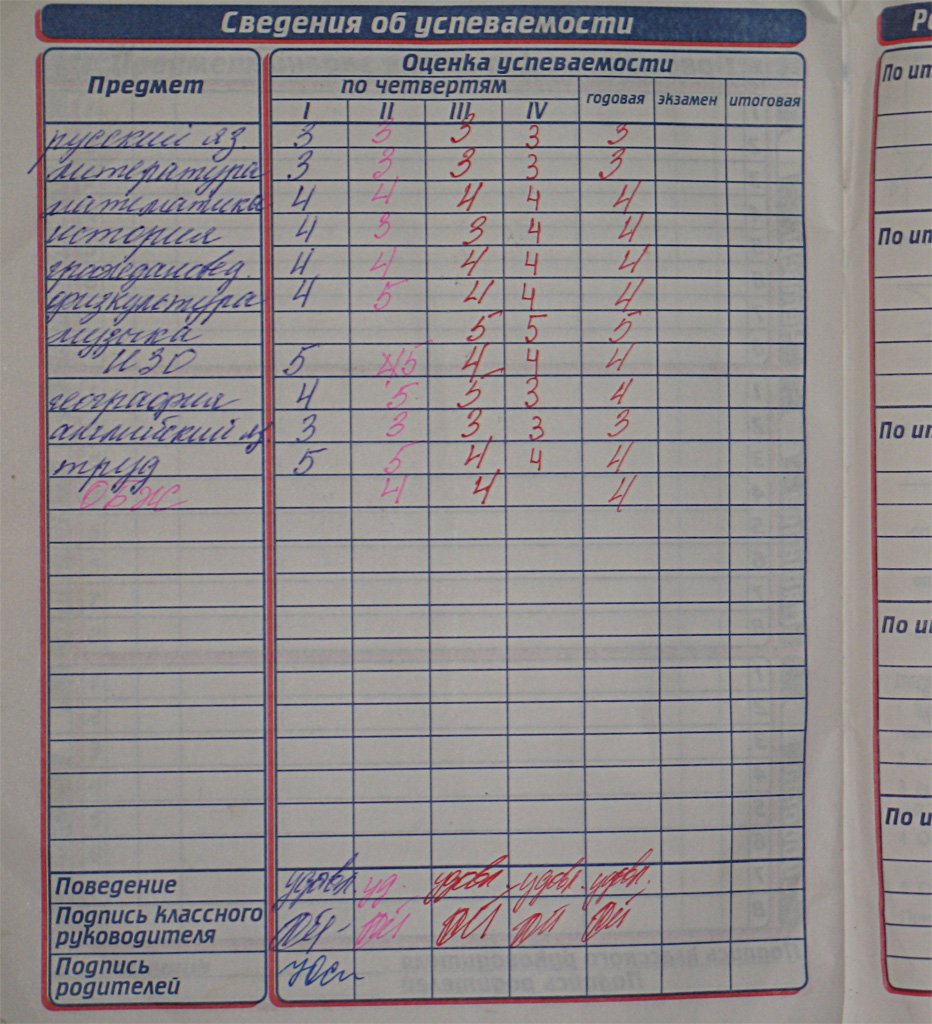 Сведения об успеваемости
Предмет
Оценка успеваемости
по четвертям
годовая экзамен итоговая
I II III IV
русский яз. 3 3 3 3 3
литература 3 3 3 3 3
математика 4 4 4 4 4
история 4 3 3 4 4
граждановед. 4 4 4 4 4
физкультура 4 5 4 4 4
музыка 5 5 5
ИЗО 5 45 4 4 4
география 4 5 5 3 4
английский яз. 3 3 3 3 3
труд 5 5 4 4 4
ОБЖ 4 4 4
Поведение удовл. уд. удовл. удовл. удовл.
Подпись классного
руководителя
Подпись
родителей
По ит
По ит
По ит
По ит
По и